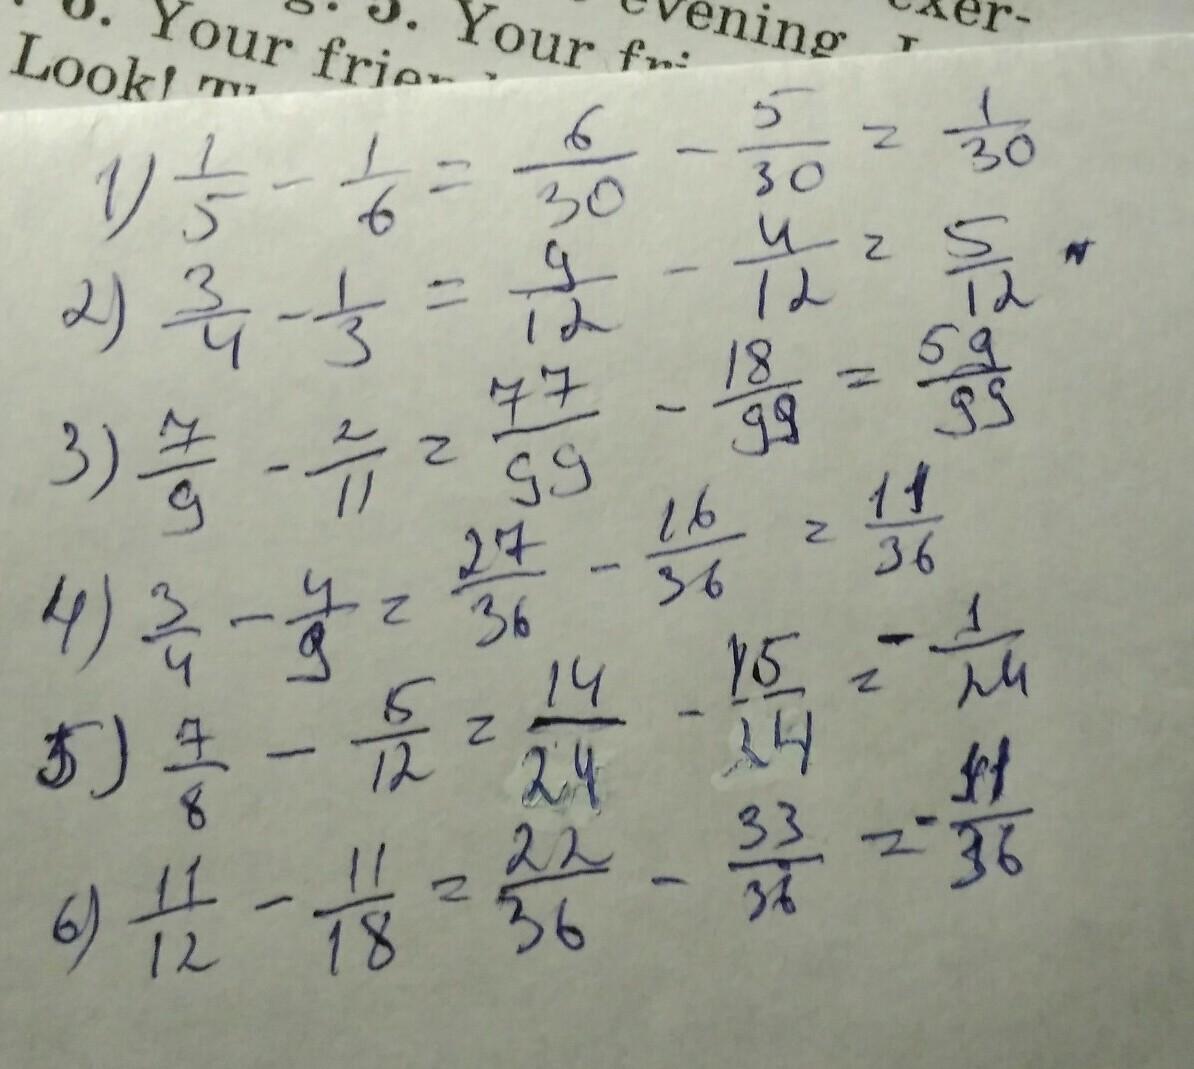 6. Your 5. Your evening exer-
Look!
1) 1/5 - 1/6 = 6/30 - 5/30 = 1/30
2) 3/4 - 1/3 = 9/12 - 4/12 = 5/12
3) 7/9 - 2/11 = 77/99 - 18/99 = 59/99
4) 3/4 - 4/9 = 27/36 - 16/36 = 11/36
5) 7/8 - 5/12 = 14/24 - 15/24 = - 1/24
6) 11/12 - 11/18 = 22/36 - 33/36 = - 11/36